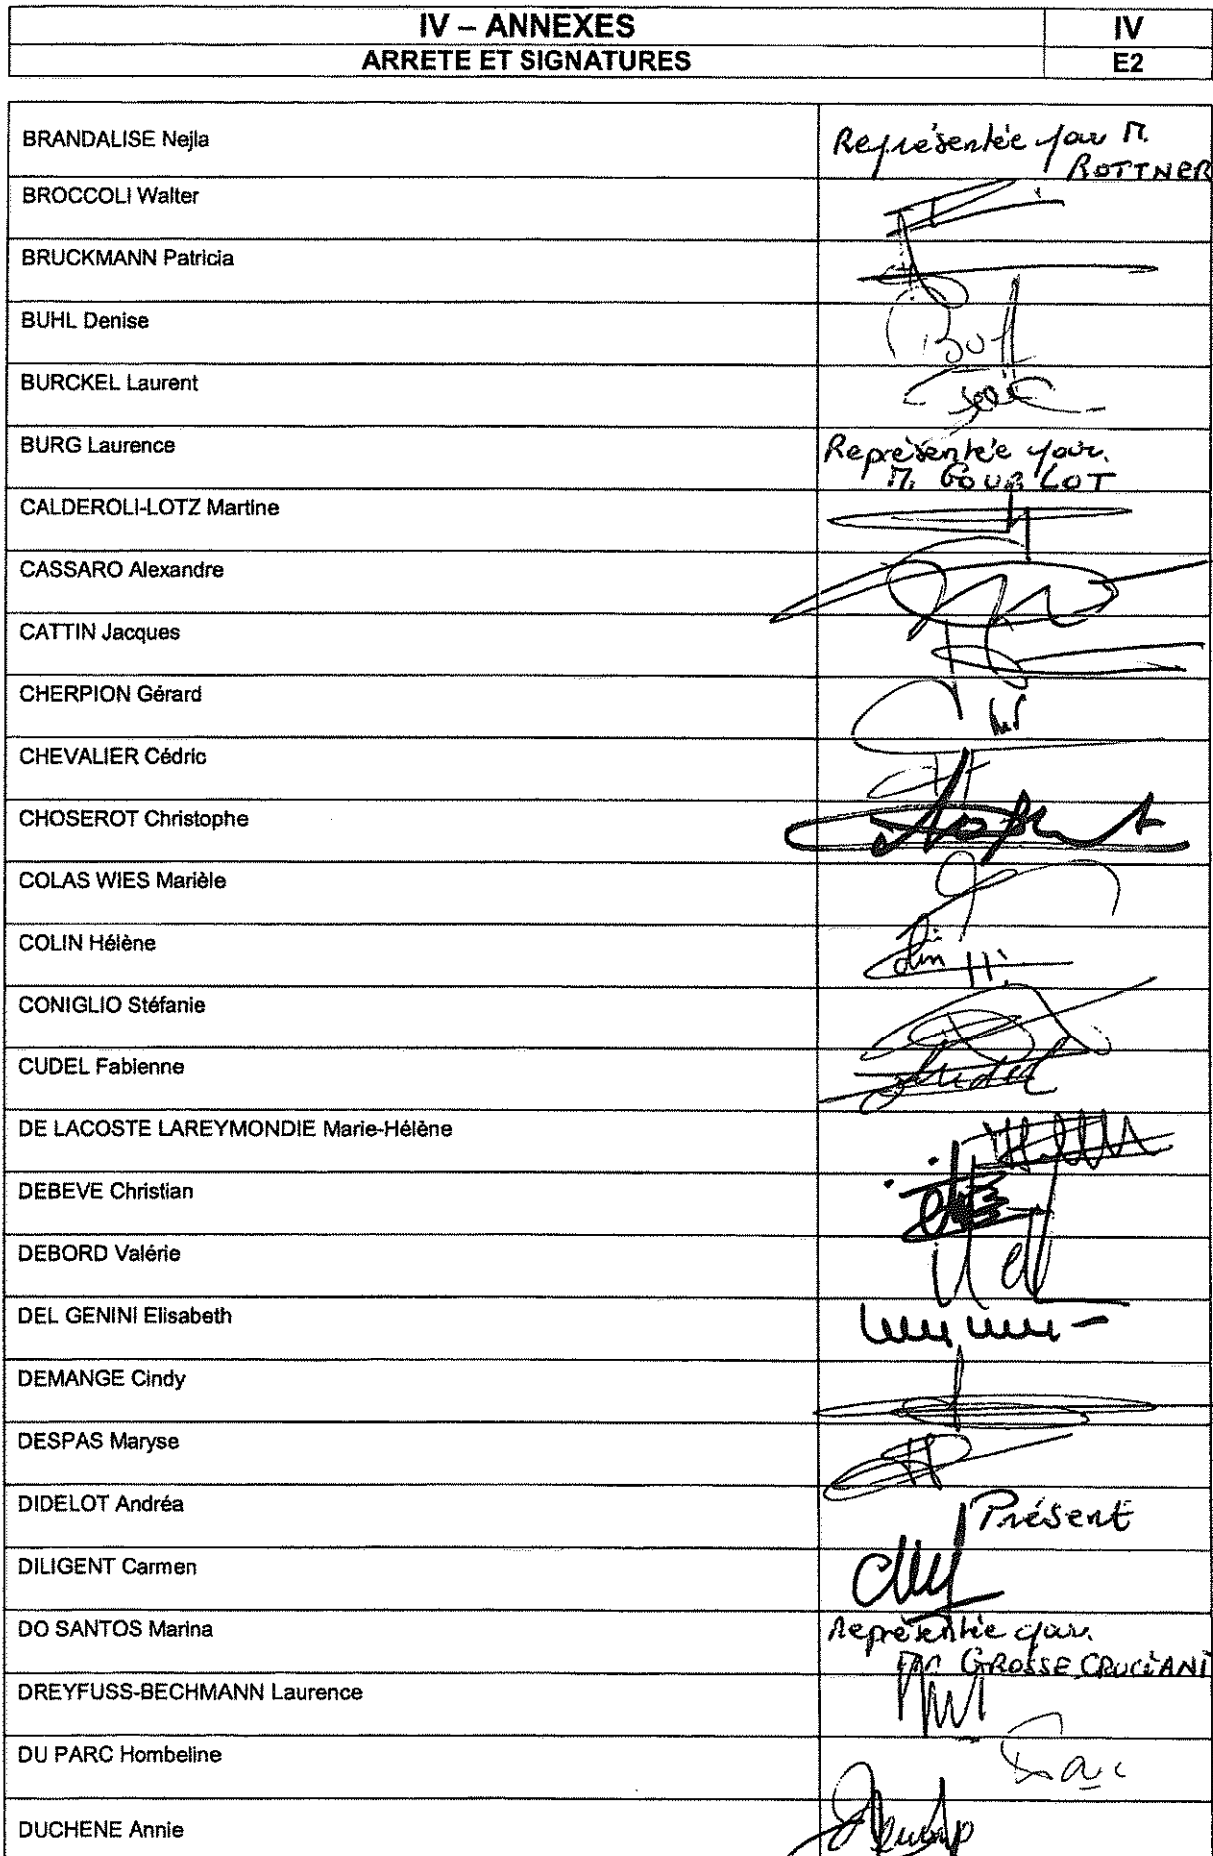 IV – ANNEXES
IV
ARRETE ET SIGNATURES
E2
BRANDALISE Nejla
Représentée par M.
ROTTNER
BROCCOLI Walter
BRUCKMANN Patricia
BUHL Denise
BURCKEL Laurent
BURG Laurence
Représentée par
M. GOURLOT
CALDEROLI-LOTZ Martine
CASSARO Alexandre
CATTIN Jacques
CHERPION Gérard
CHEVALIER Cédric
CHOSEROT Christophe
COLAS WIES Marièle
COLIN Hélène
CONIGLIO Stéfanie
CUDEL Fabienne
DE LACOSTE LAREYMONDIE Marie-Hélène
DEBEVE Christian
DEBORD Valérie
DEL GENINI Elisabeth
DEMANGE Cindy
DESPAS Maryse
DIDELOT Andréa
Présent
DILIGENT Carmen
DO SANTOS Marina
Représentée par
GROSSE CRUCIANI
DREYFUSS-BECHMANN Laurence
DU PARC Hombeline
DUCHENE Annie